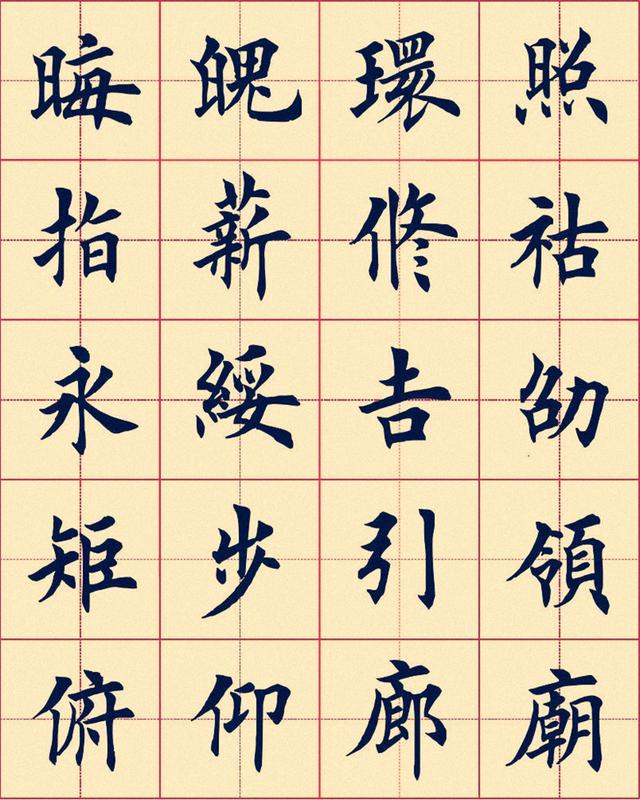 晦魄環照
指薪修祜
永綏吉劭
矩步引領
俯仰廊廟